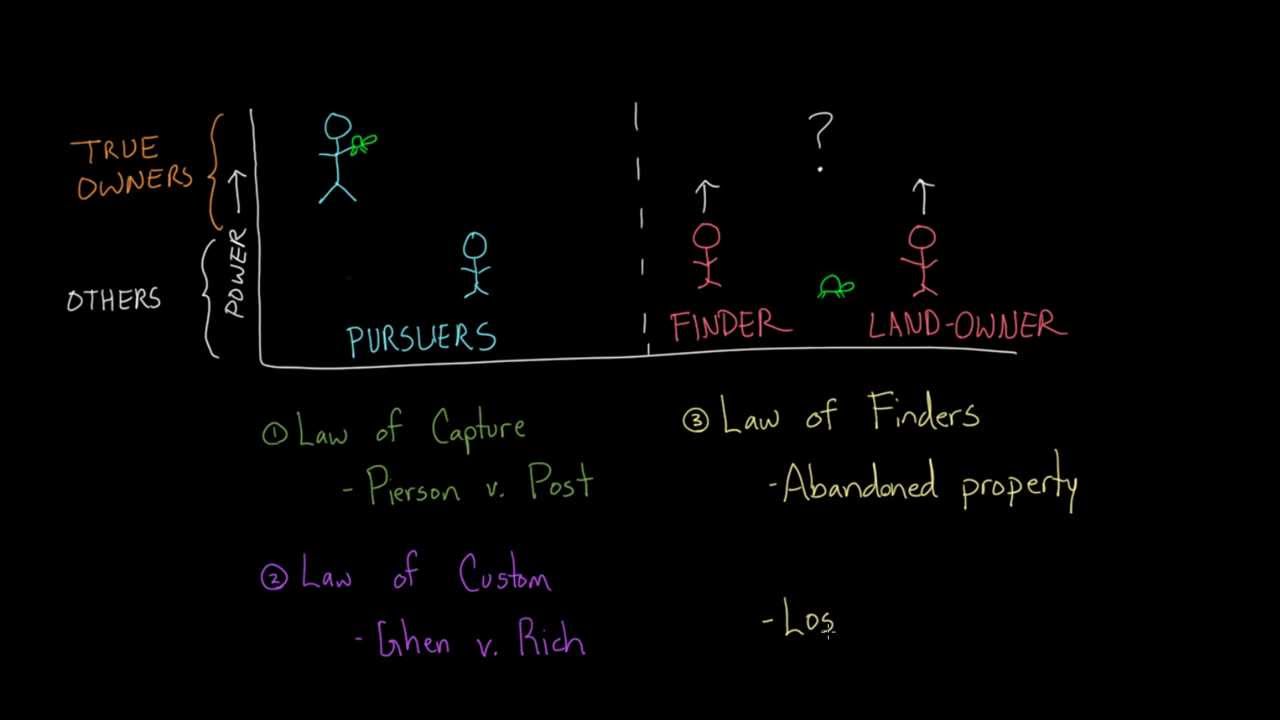 TRUE
OWNERS
OTHERS
POWER →
?
PURSUERS
FINDER
LAND-OWNER
① Law of Capture
- Pierson v. Post
② Law of Custom
- Ghen v. Rich
③ Law of Finders
- Abandoned property
- Los